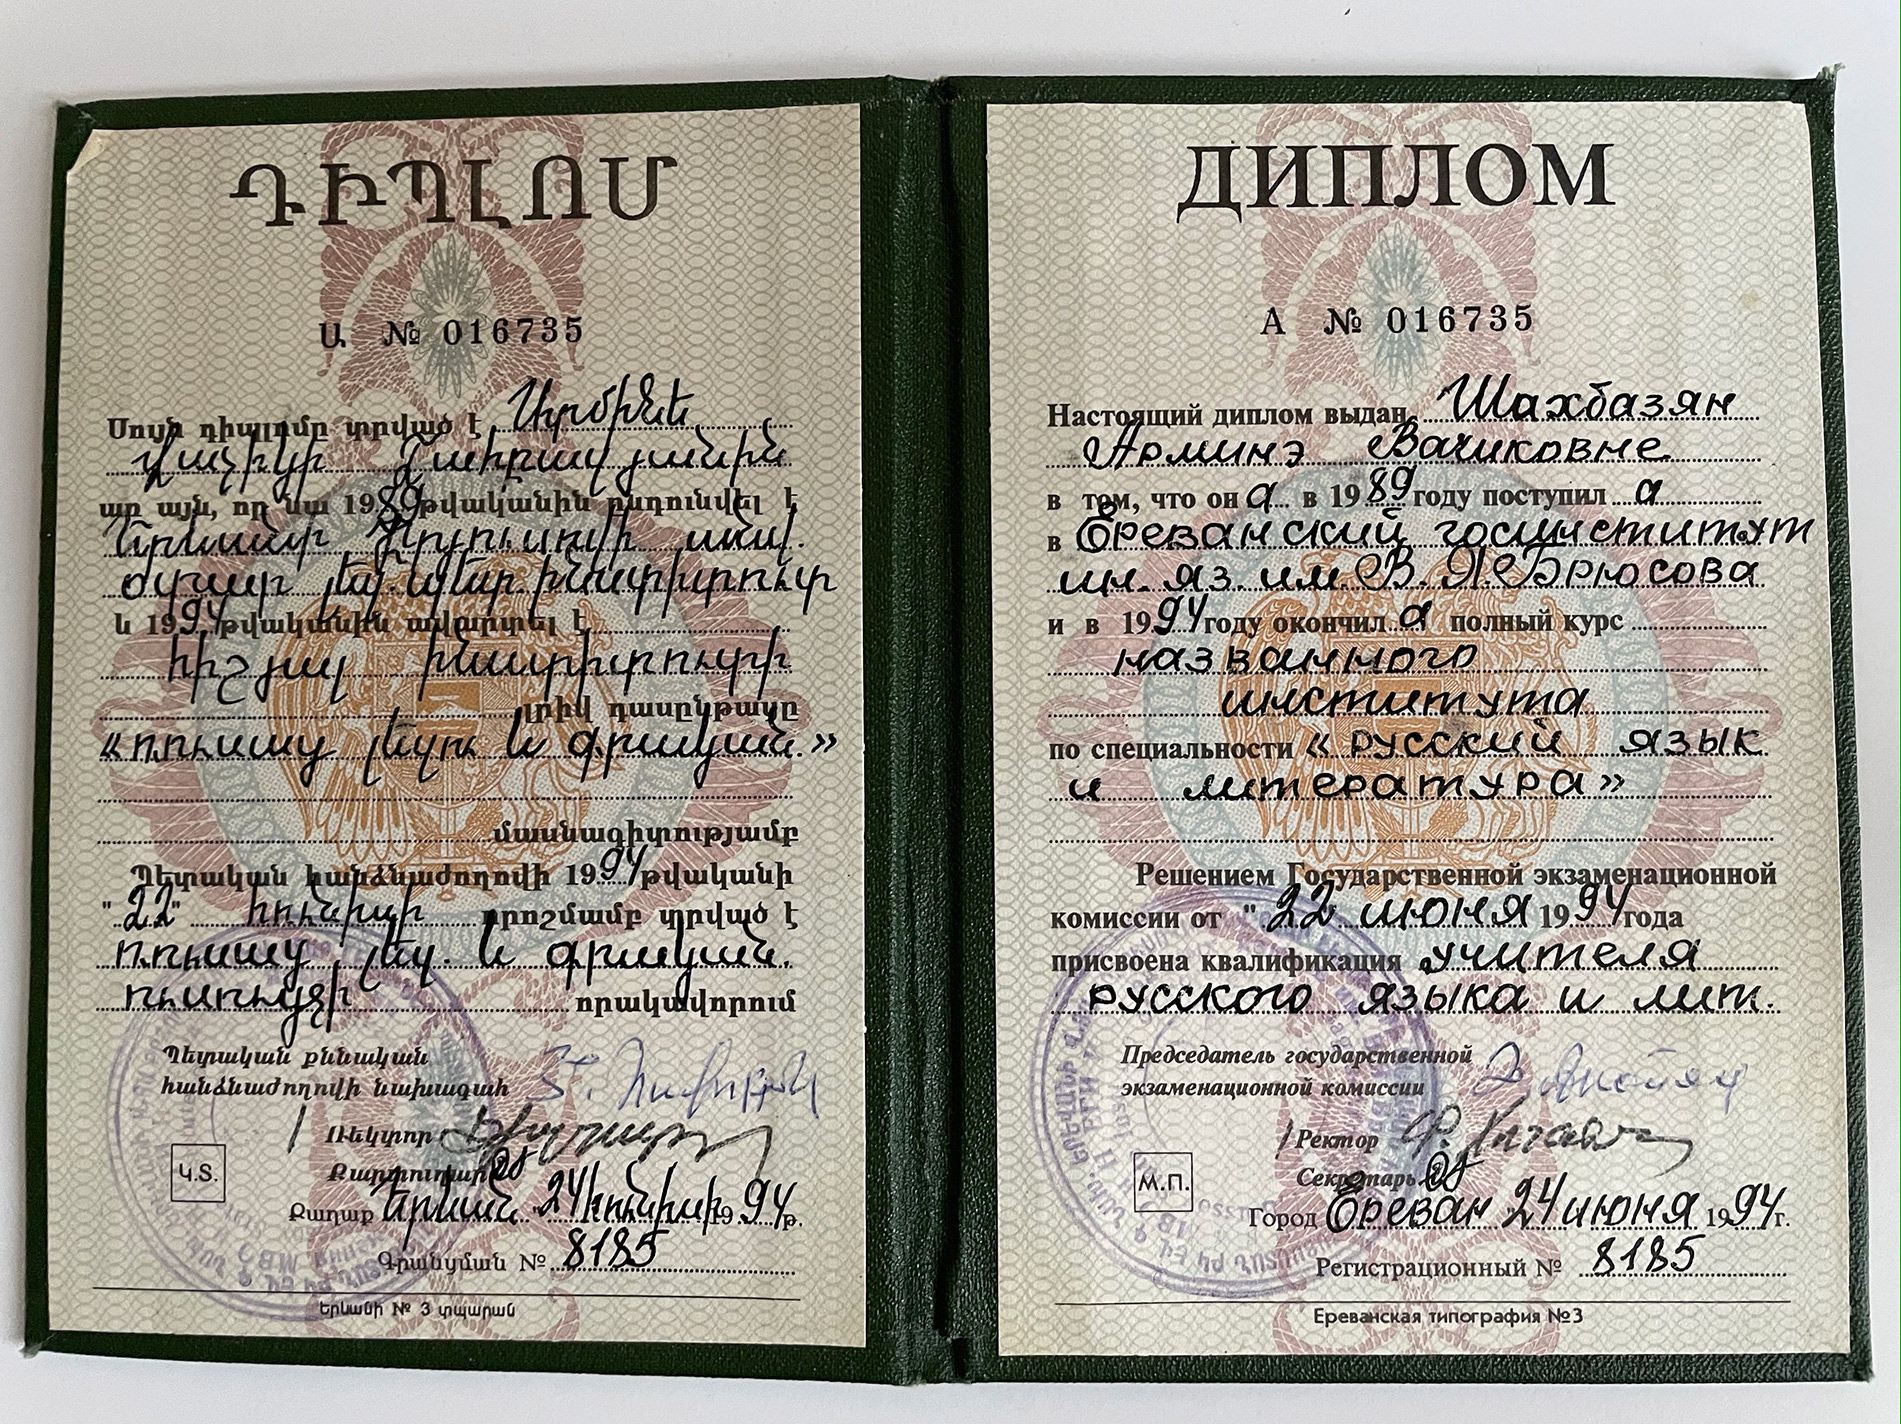 ԴԻՊԼՈՄ
Ա № 016735
Սույն դիպլոմը տրված է Արմինե
Վաչիկի Շահբազյանին
առ այն, որ նա 1989 թվականին ընդունվել է
Երևանի Բրյուսովի անվ.
օտար լեզ. պետ. ինստիտուտ
և 1994 թվականին ավարտել է
հիշյալ ինստիտուտի
լրիվ դասընթացը
«ռուսաց լեզու և գրական.»
մասնագիտությամբ
Պետական հանձնաժողովի 1994 թվականի
"22" հունիսի որոշմամբ տրված է
ռուսաց լեզ. և գրական.
ուսուցչի որակավորում
Պետական քննական
հանձնաժողովի նախագահ
Ռեկտոր
Քարտուղար
Կ.Տ.
Քաղաք Երևան "24 հունիսի 1994թ.
Գրանցման № 8185
Երևանի № 3 տպարան
ДИПЛОМ
А № 016735
Настоящий диплом выдан Шахбазян
Арминэ Вачиковне
в том, что он а в 1989 году поступил а
в Ереванский госинститут
ин. яз. им. В. Я. Брюсова
и в 1994 году окончил а полный курс
названного
института
по специальности «русский язык
и литература»
Решением Государственной экзаменационной
комиссии от "22" июня 1994 года
присвоена квалификация учителя
русского языка и лит.
Председатель государственной
экзаменационной комиссии
Ректор
Секретарь
М.П.
Город Ереван 24 июня 1994г.
Регистрационный № 8185
Ереванская типография №3